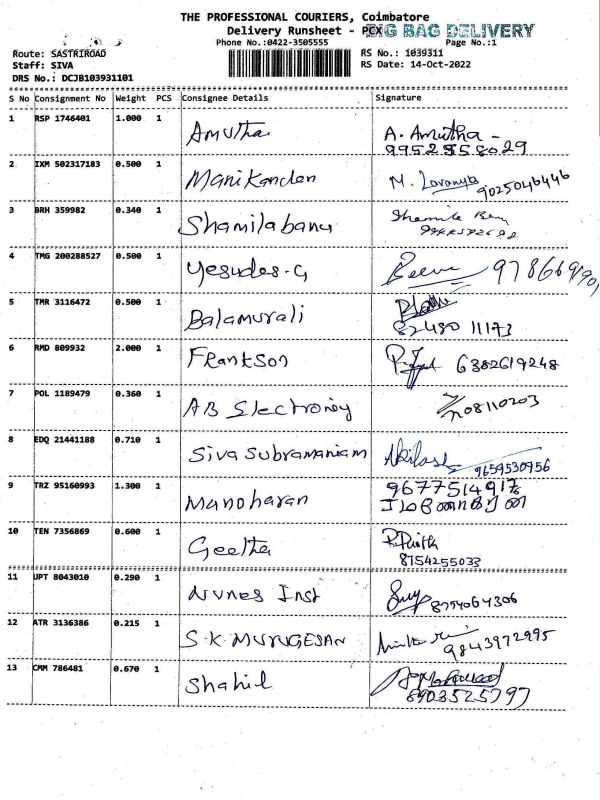 THE PROFESSIONAL COURIERS, Coimbatore
Delivery Runsheet - PCX BIG BAG DELIVERY
Phone No.:0422-3505555 Page No.:1
Route: SASTRIROAD RS No.: 1039311
Staff: SIVA RS Date: 14-Oct-2022
DRS No.: DCJB103931101
S No Consignment No Weight PCS Consignee Details Signature
1 RSP 1746401 1.000 1 Amutha A. Amutha -
9952558029
2 IXM 502317183 0.500 1 Manikandan M. Lavanya 9025046446
3 BRH 359982 0.340 1 Shamilabanu
4 TMG 200288527 0.500 1 Yesudas-G
5 TMR 3116472 0.500 1 Balamurali
82480 11173
6 RMD 809932 2.000 1 Frankson 6382619248
7 POL 1189479 0.360 1 AB Electroniy
8 EDQ 21441188 0.710 1 Siva Subramaniam
9659530956
9 TRZ 95160993 1.300 1 Manoharan
10 TEN 7356869 0.600 1 Geetha
8754255033
11 UPT 8043010 0.290 1 Nunes Inst 8754064306
12 ATR 3136386 0.215 1 S.K. MURUGESAN
9843972995
13 CMM 786481 0.670 1 Shahil
8903525797